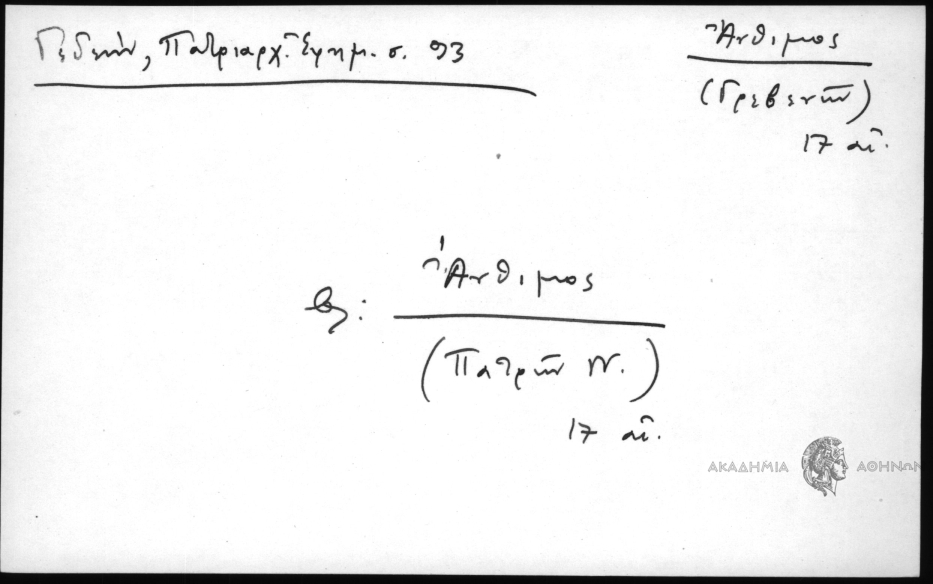 Γεδεών, Πατριαρχ. Εφημ. σ. 93
Ἄνθιμος
(Γρεβενῶν)
17 αἰ.
Ἄνθιμος
βλ:
(Πατρῶν Ν.)
17 αἰ.
ΑΚΑΔΗΜΙΑ ΑΘΗΝΩΝ